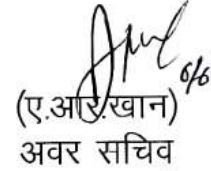 6/6
(ए.आर.खान)
अवर सचिव